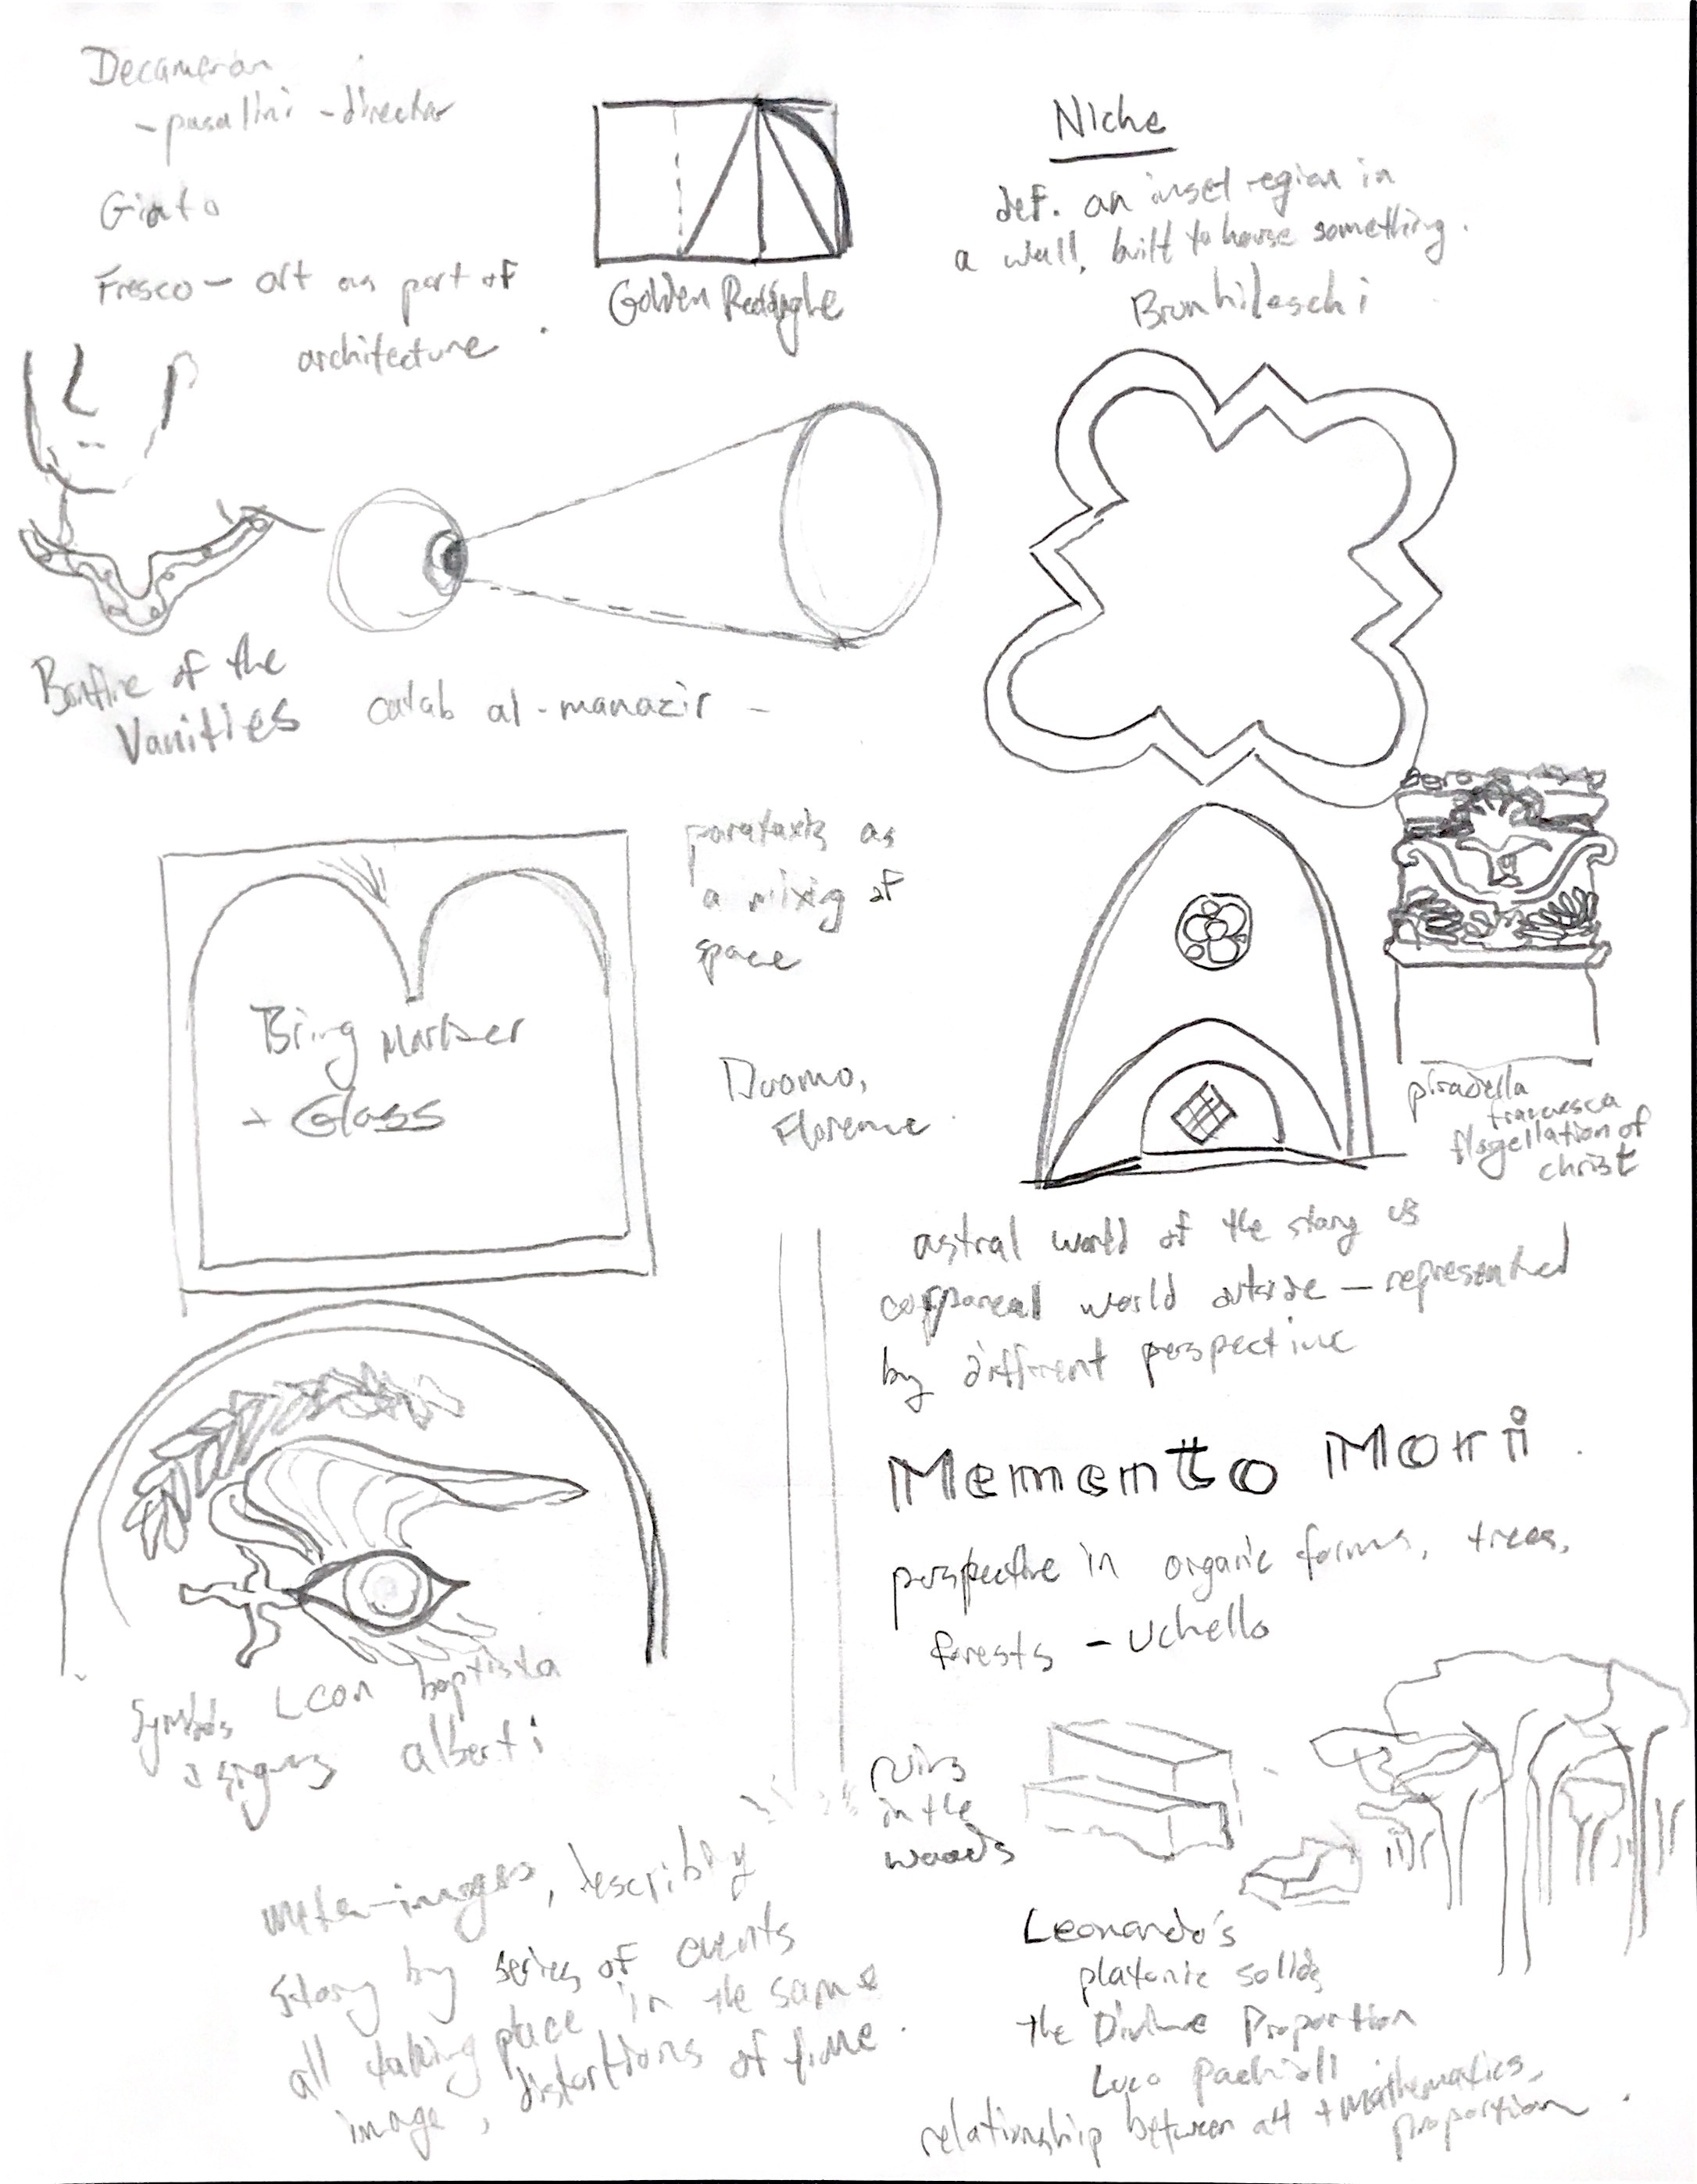 Decameron
- pasalini - director
Gioto
Fresco - art as part of
architecture
Golden Rectangle
Niche
def. an inset region in
a wall, built to house something.
Brunhileschi
Bonfire of the
Vanities
catab al-manazir -
parataxis as
a mixing of
space
Bring Marker
+ Glass
Duomo,
Florence
piradella
francesca
flagellation of
christ
astral world of the story vs
corporeal world outside - represented
by different perspective
Memento Mori
perspective in organic forms, trees,
forests - Uchello
Symbols Leon baptista
alberti
ruins
in the
woods
meta-images, describing
story by series of events
all taking place in the same
image, distortions of time.
Leonardo's
platonic solids
the Divine Proportion
Luca Pachioli
relationship between art + mathematics,
proportion